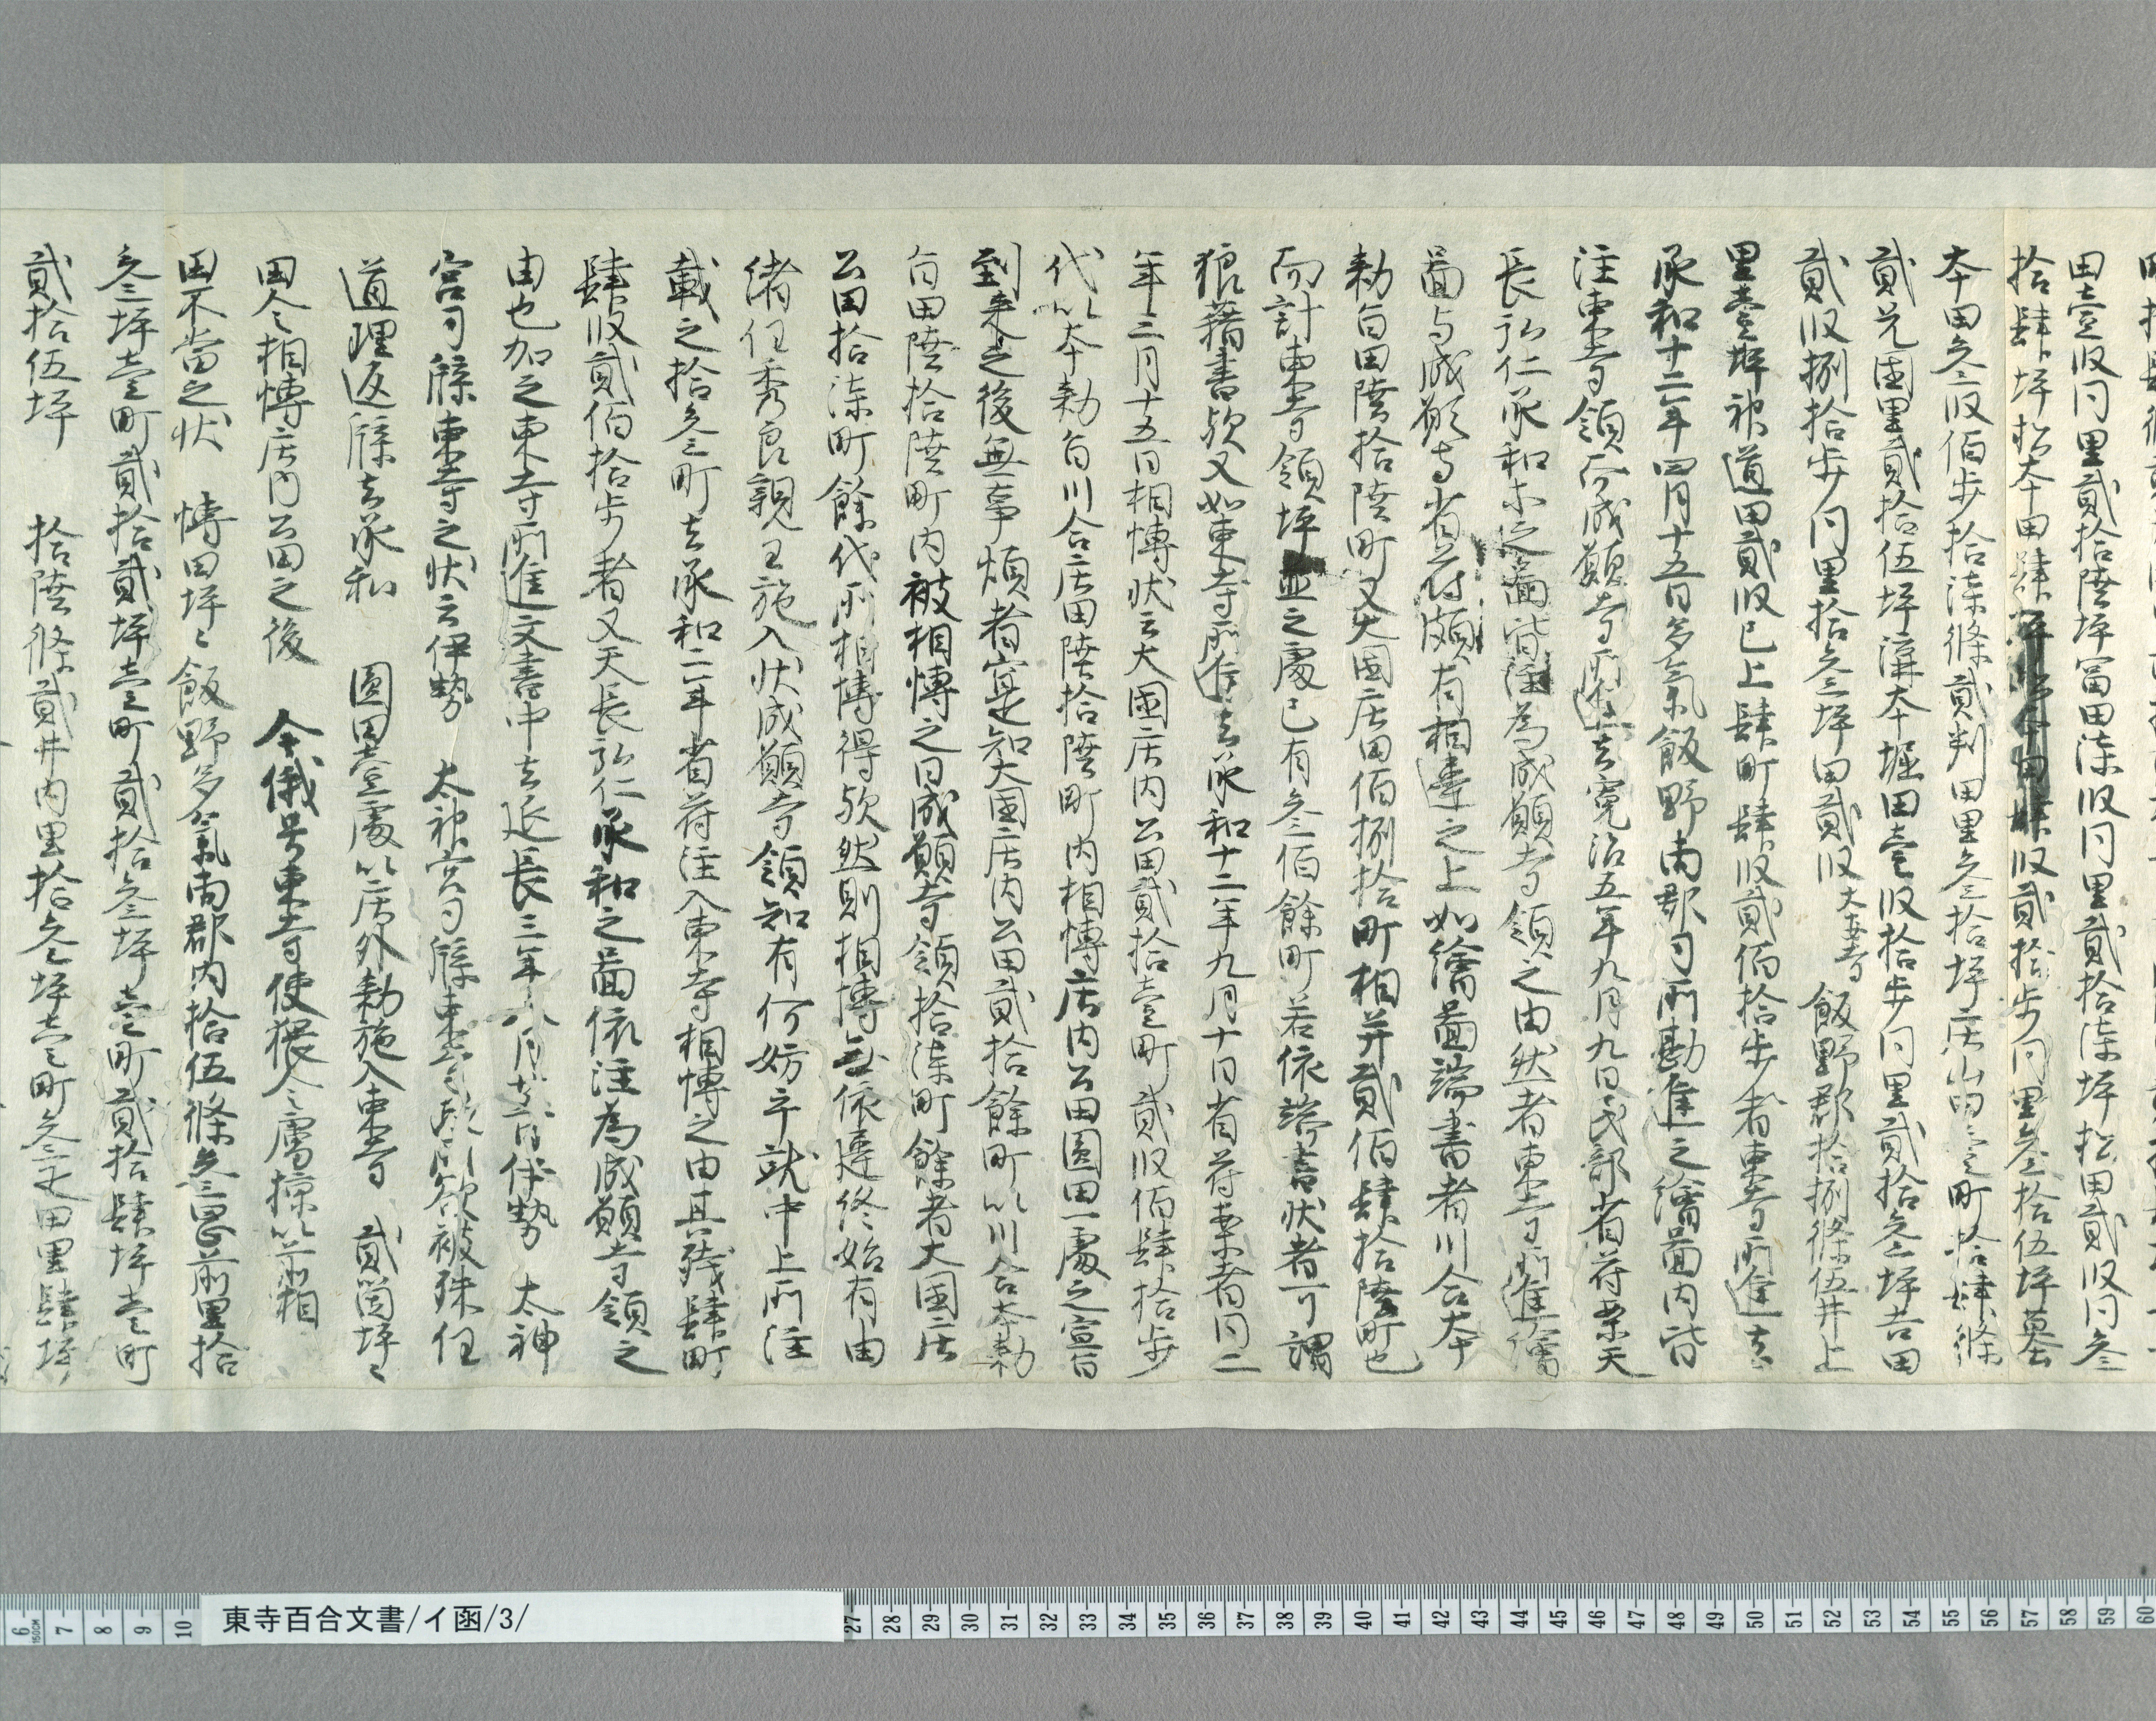 田壹段同里貳拾陸坪冨田柒段同里貳拾柒坪松田貳段同叁
拾肆坪松本田肆段貳拾步同里叁拾伍坪墓
本田叁段佰步拾柒條貳判田里叁拾坪庄山内壹町拾肆條
貳兄國里貳拾伍坪溝本堀田壹段拾步同里貳拾叁坪吉田
貳段捌拾步同里拾叁坪田貳段 飯野郡拾捌條伍井上
里壹坪神道田貳段已上肆町肆段貳佰拾步者東寺所進去
承和十二年四月十五日多氣飯野両郡司所勘進之繪圖内皆
注東寺領而成願寺所進去寛治五年九月九日民部省符案天
長弘仁承和等之圖皆注為成願寺領之由然者東寺所進繪
圖与成願寺省符頗有相違之上如繪圖端書者川合本
勅旨田陸拾陸町又大國庄田佰捌拾町相并貳佰肆拾陸町也
而計東寺領坪並之處已有叁佰餘町若依端書状者可謂
狼藉書歟又如東寺所進去承和十二年九月十日省符案者同二
年二月十五日相博状云大國庄内公田貳拾壹町貳段佰肆拾步
代以本勅旨川合庄田陸拾陸町内相博庄内公田圓田一處之宣旨
到来之後無事煩者寔知大國庄内公田貳拾餘町以川合本勅
旨田陸拾陸町内被相博之日成願寺領拾柒町餘者大國庄
公田拾柒町餘代所相博得歟然則相博無依違終始有由
緒任秀良親王施入状成願寺領知有何妨乎就中上所注
載之拾叁町去承和二年省符注入東寺相博之由其殘肆町
肆段貳佰拾步者又天長弘仁承和之圖依注為成願寺領之
由也加之東寺所進文書中去延長三年八月廿六日伊勢 太神
宮司牒東寺之状云伊勢 太神宮司牒東寺 欲被殊任
道理返牒去承和 圓田壹處以庄外勅施入東寺 貳箇坪々
田公相博庄内公田之後 今俄号東寺使猥公虜掠以前相
田不當之状 博田坪々飯野多氣両郡内拾伍條叁里前里拾
叁坪壹町貳拾貳坪壹町貳拾叁坪壹町貳拾肆坪壹町
貳拾伍坪 拾陸條貳井内里拾叁坪壹町叁疋田里肆坪